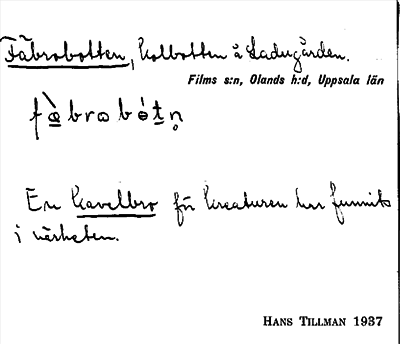 Fäbrobotten, kolbotten å Ladugården.
Films s:n, Olands h:d, Uppsala län
fæ̀brobótn̥
En kavelbro för kreaturen har funnits
i närheten.
HANS TILLMAN 1937